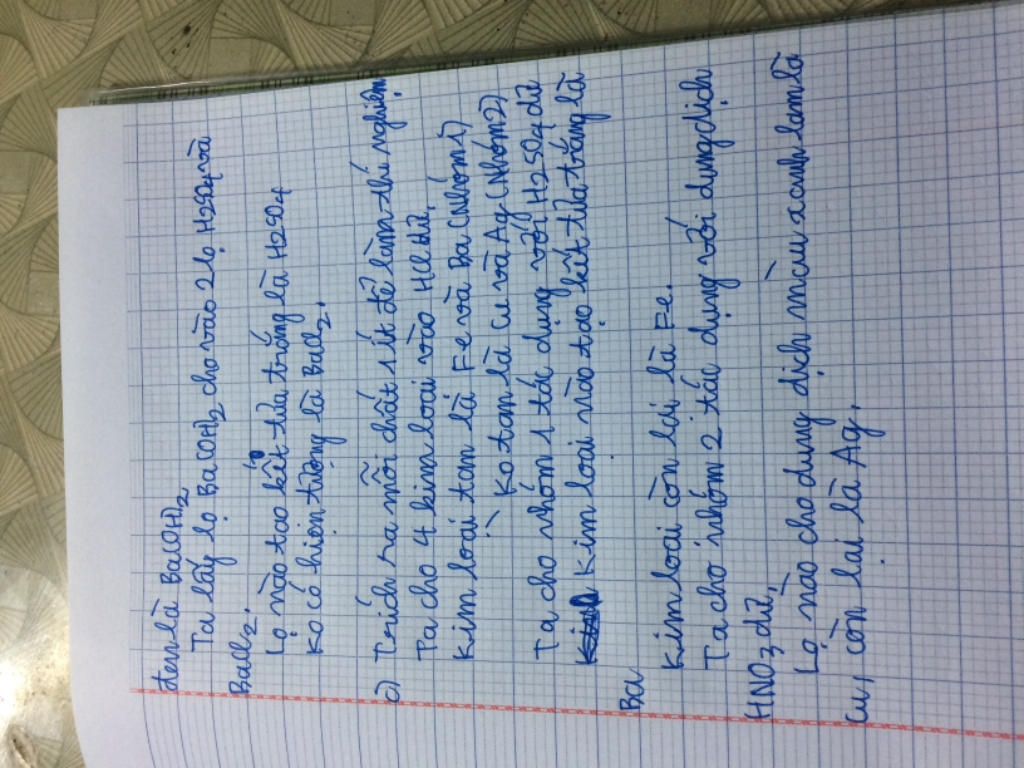 đen là Ba(OH)2
Ta lấy lọ Ba(OH)2 cho vào 2 lọ H2SO4 và
BaCl2.
Lọ nào tạo kết tủa trắng là H2SO4
Ko có hiện tượng là BaCl2.
c) Trích ra mỗi chất 1 ít để làm thí nghiệm
Ta cho 4 kim loại vào HCl dư,
Kim loại tan là Fe và Ba (Nhóm 1)
Ko tan là Cu và Ag (Nhóm 2)
Ta cho nhóm 1 tác dụng với H2SO4 dư
Kim loại nào tạo kết tủa trắng là
Ba
Kim loại còn lại là Fe.
Ta cho nhóm 2 tác dụng với dung dịch
HNO3 dư,
Lọ nào cho dung dịch màu xanh lam là
Cu, còn lại là Ag.